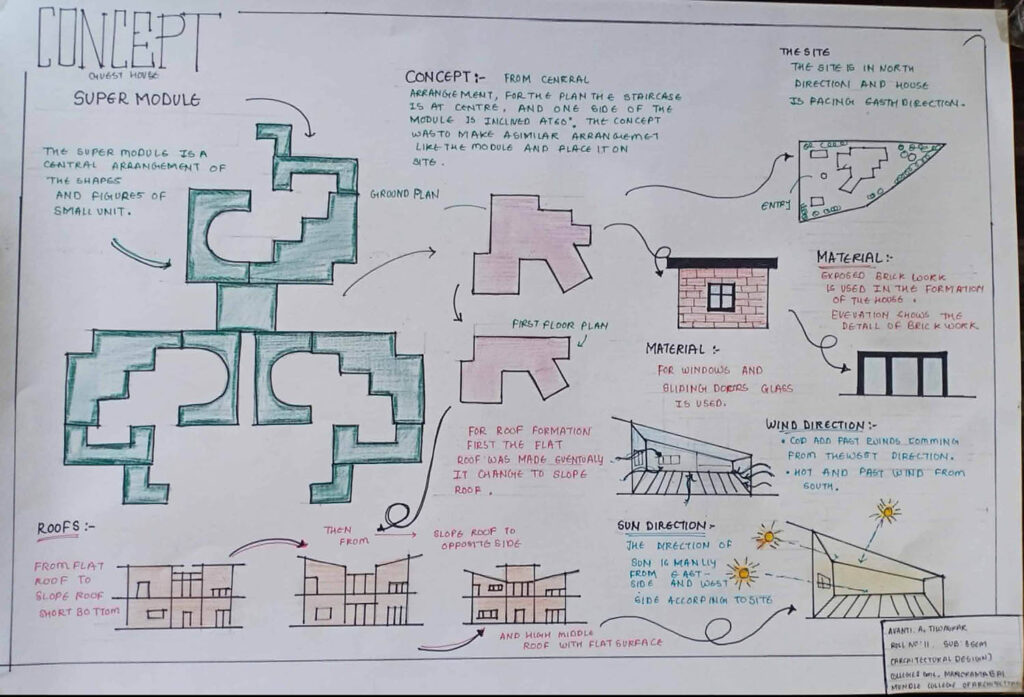 CONCEPT
GUEST HOUSE
SUPER MODULE
THE SUPER MODULE IS A
CENTRAL ARRANGEMENT OF
THE SHAPES
AND FIGURES OF
SMALL UNIT.
CONCEPT:- FROM CENRRAL
ARRANGEMENT, FOR THE PLAN THE STAIRCASE
IS AT CENTRE, AND ONE SIDE OF THE
MODULE IS INCLINED AT 60°, THE CONCEPT
WAS TO MAKE A SIMILAR ARRANGEMET
LIKE THE MODULE AND PLACE IT ON
SITE.
THE SITE
THE SITE IS IN NORTH
DIRECTION AND HOUSE
IS FACING EASTH DIRECTION.
ENTRY
GROUND PLAN
FIRST FLOOR PLAN
MATERIAL:-
EXPOSED BRICK WORK
IS USED IN THE FORMATION
OF THE HOUSE.
EVEVATION SHOWS THE
DETALL OF BRICK WORK
MATERIAL:-
FOR WINDOWS AND
SLIDING DOORS GLASS
IS USED.
FOR ROOF FORMATION
FIRST THE FLAT
ROOF WAS MADE EVENTUALY
IT CHANGE TO SLOPE
ROOF.
WIND DIRECTION:-
• COD ADD FAST WINDS COMMING
FROM THE WEST DIRECTION.
• HOT AND FAST WIND FROM
SOUTH.
ROOFS:-
FROM FLAT
ROOF TO
SLOPE ROOF
SHORT BOTTOM
THEN
FROM → SLOPE ROOF TO
OPPOSITE SIDE
AND HIGH MIDDLE
ROOF WITH FLAT SURFACE
SUN DIRECTION:-
THE DIRECTION OF
SUN IS MANLIY
FROM EAST-
SIDE AND WEST
SIDE ACCORPING TO SITE
AVANTI. A.
ROLL NO:11, SUB:
(ARCHITECTURAL DESIGN)
MANORAMABAI
MUNDLE COLLEGE OF ARCHITECTURE